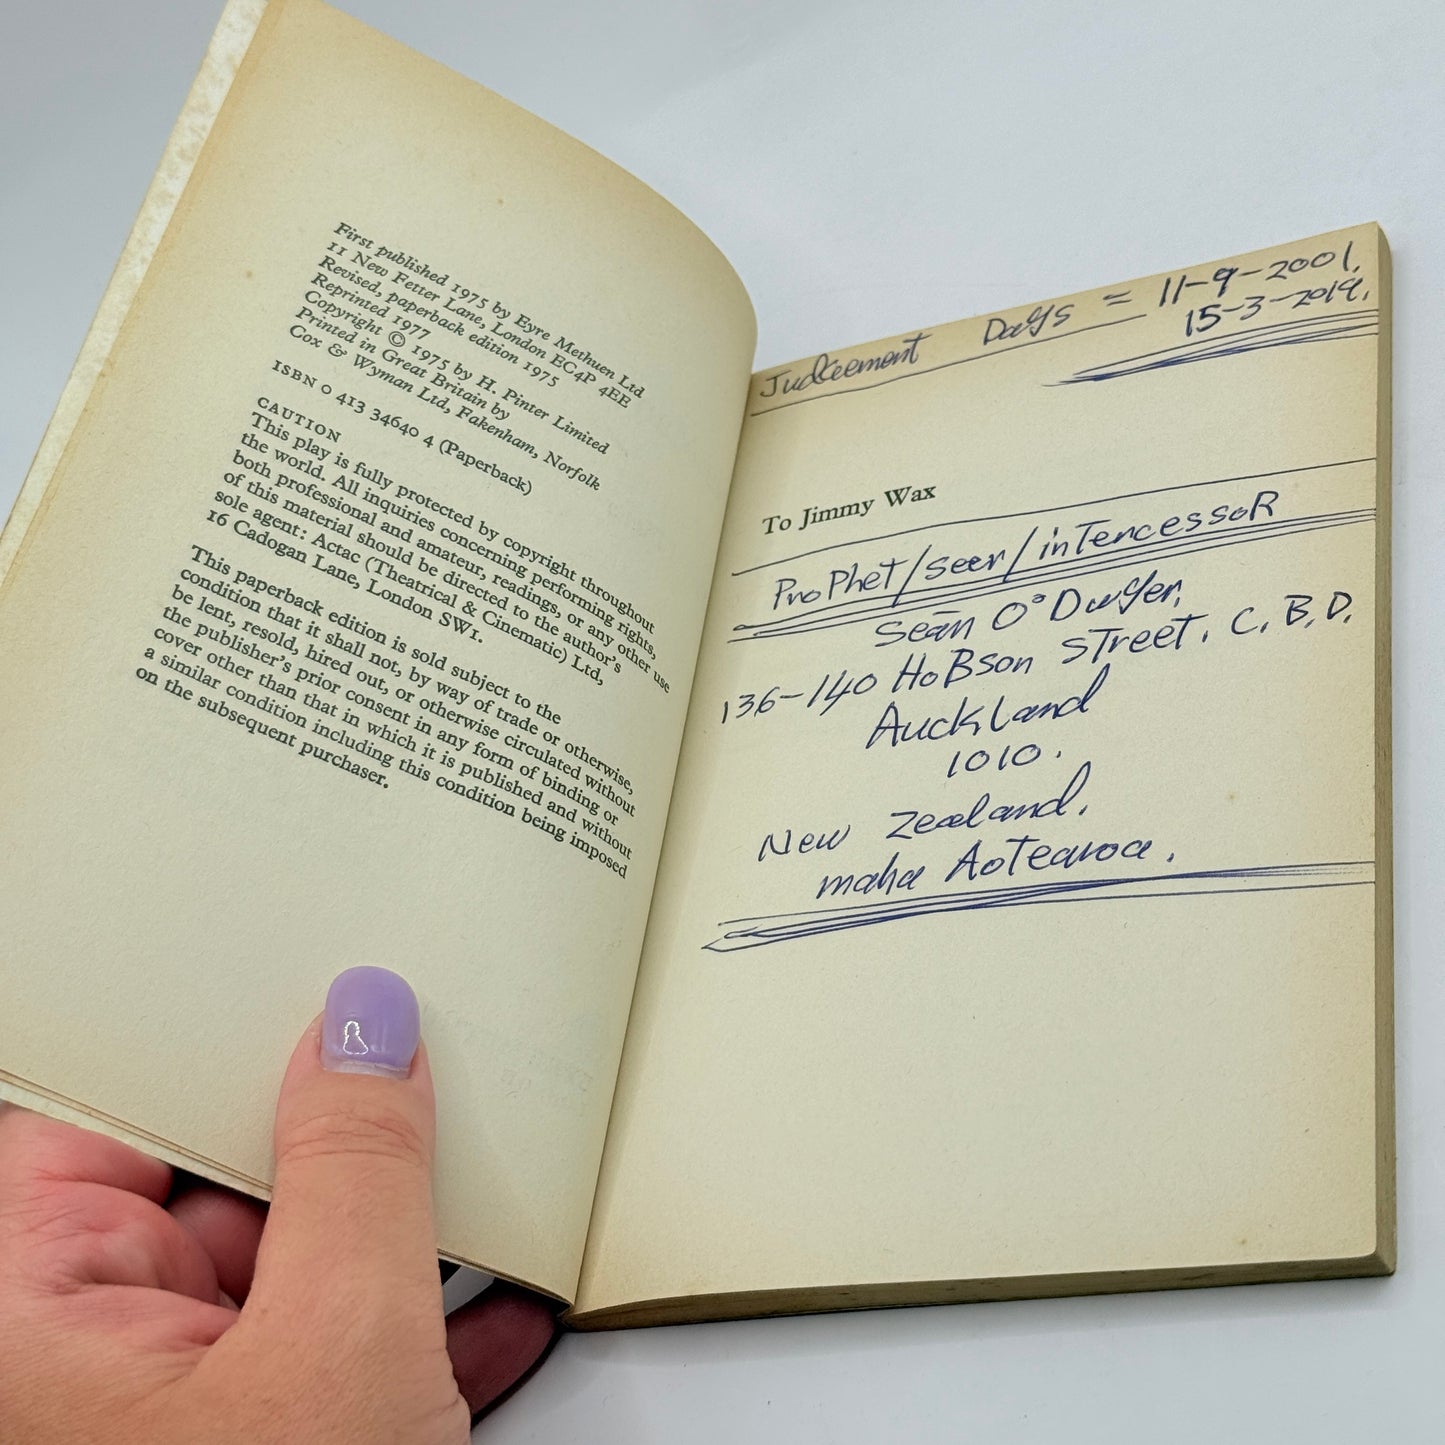 First published 1975 by Eyre Methuen Ltd
11 New Fetter Lane, London EC4P 4EE
Revised, paperback edition 1975
Reprinted 1977
Copyright © 1975 by H. Pinter Limited
Printed in Great Britain by
Cox & Wyman Ltd, Fakenham, Norfolk
ISBN 0 413 34640 4 (Paperback)
CAUTION
This play is fully protected by copyright throughout
the world. All inquiries concerning performing rights,
both professional and amateur, readings, or any other use
of this material should be directed to the author's
sole agent: Actac (Theatrical & Cinematic) Ltd,
16 Cadogan Lane, London SW1.
This paperback edition is sold subject to the
condition that it shall not, by way of trade or otherwise,
be lent, resold, hired out, or otherwise circulated without
the publisher's prior consent in any form of binding or
cover other than that in which it is published and without
a similar condition including this condition being imposed
on the subsequent purchaser.
Judgement Days = 11-9-2001.
15-3-2019.
To Jimmy Wax
Prophet/seer/intercessor
Seān O°Dwyer.
136-140 Hobson street. C.B.D.
Auckland
1010.
New Zealand.
maha Aotearoa.